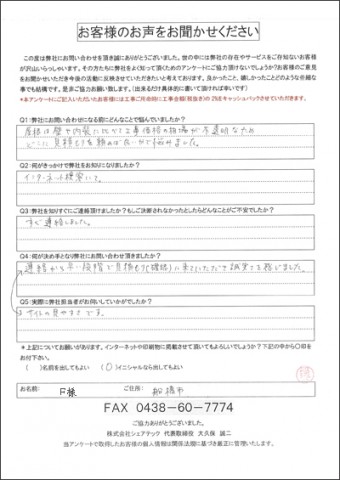 お客様のお声をお聞かせください
この度は弊社にお問い合わせを頂き誠にありがとうございました。世の中には弊社の存在やサービスをご存知ないお客様
が沢山いらっしゃいます。その方たちに弊社をよく知って頂くためのアンケートにご協力頂けないでしょうか？お客様のご意見
をお聞かせいただき今後の活動に反映させていただきたいと考えております。良かったこと、嬉しかったことどのような些細な
事でも結構です。是非ご協力お願いします。（出来るだけ具体的に書いて頂ければ幸いです）
*本アンケートにご記入いただいたお客様には工事ご用命時に工事金額（税抜き）の2%をキャッシュバックさせていただきます。
Q1：弊社にお問い合わせになる前にどんなことで悩んでいましたか？
屋根は壁や内装に比べて工事価格の相場が不透明なため
どこに見積もりを頼めば良いかで悩みました。
Q2：何がきっかけで弊社をお知りになりましたか？
インターネット検索にて。
Q3：弊社を知りすぐにご連絡頂けましたか？もしご決断されなかったとしたらどんなことがご不安でしたか？
すぐ連絡しました。
Q4：何が決め手となり弊社にお問い合わせ頂きましたか？
連絡から早い段階で見積もり（確認）に来ていただき誠実さを感じました。
Q5：実際に弊社担当者がお伺いしていかがでしたか？
はサイトの見やすさです。
＊上記についてお願いがあります。インターネットや印刷物に掲載させて頂いてもよろしいでしょうか？下記の中から〇印を
お付下さい。
（　）名前を出してもよい　（〇）イニシャルなら出してもよい
お名前： F様 ご住所： 船橋市
FAX 0438-60-7774
ご協力ありがとうございました。
株式会社シェアテック 代表取締役 大久保 誠二
当アンケートで取得したお客様の個人情報は関係法順に基づき厳正に管理いたします。